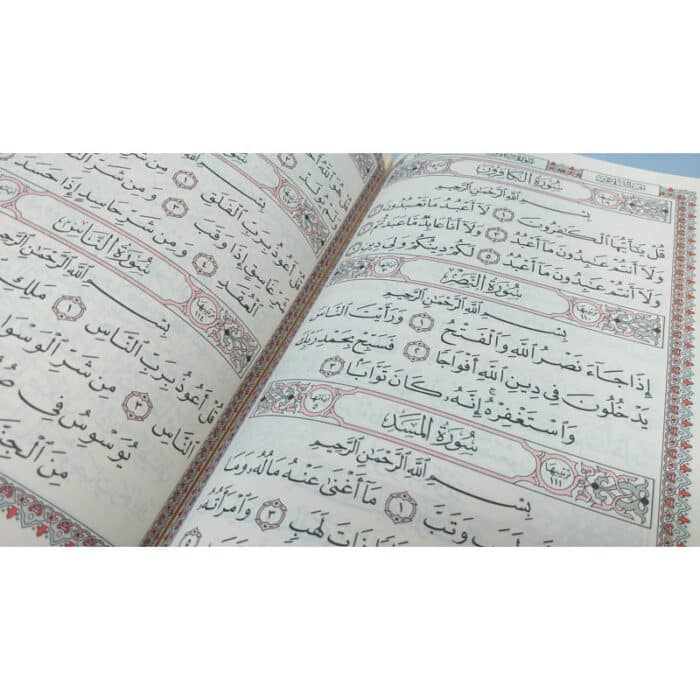 سُورَةُ الكَافِرُونَ
بِسْمِ اللَّهِ الرَّحْمَٰنِ الرَّحِيمِ
قُلْ يَٰٓأَيُّهَا ٱلْكَٰفِرُونَ ١ لَآ أَعْبُدُ مَا تَعْبُدُونَ ٢
وَلَآ أَنتُمْ عَٰبِدُونَ مَآ أَعْبُدُ ٣ وَلَآ أَنَا۠ عَابِدٌ مَّا عَبَدتُّمْ ٤
وَلَآ أَنتُمْ عَٰبِدُونَ مَآ أَعْبُدُ ٥ لَكُمْ دِينُكُمْ وَلِيَ دِينِ ٦
سُورَةُ النَّصْرِ
بِسْمِ اللَّهِ الرَّحْمَٰنِ الرَّحِيمِ
إِذَا جَآءَ نَصْرُ ٱللَّهِ وَٱلْفَتْحُ ١ وَرَأَيْتَ ٱلنَّاسَ
يَدْخُلُونَ فِى دِينِ ٱللَّهِ أَفْوَاجًا ٢ فَسَبِّحْ بِحَمْدِ رَبِّكَ
وَٱسْتَغْفِرْهُ ۚ إِنَّهُۥ كَانَ تَوَّابًۢا ٣
سُورَةُ المَسَدِ
ترتيبها ١١١
بِسْمِ اللَّهِ الرَّحْمَٰنِ الرَّحِيمِ
وَتَبَّ ١ مَآ أَغْنَىٰ عَنْهُ مَالُهُۥ وَمَا
ذَاتَ لَهَبٍ ٣ وَٱمْرَأَتُهُۥ
قُلْ هُوَ ٱللَّهُ
بِسْمِ
قُلْ أَعُوذُ بِرَبِّ ٱلْفَلَقِ ١ مِن شَرِّ
غَاسِقٍ إِذَا وَقَبَ ٣ وَمِن شَرِّ
ٱلْعُقَدِ ٤ وَمِن شَرِّ حَاسِدٍ إِذَا حَسَدَ
سُورَةُ النَّاسِ
بِسْمِ اللَّهِ الرَّحْمَٰنِ الرَّحِيمِ
قُلْ أَعُوذُ بِرَبِّ ٱلنَّاسِ ١ مَلِكِ
ٱلنَّاسِ ٣ مِن شَرِّ ٱلْوَسْوَاسِ
يُوَسْوِسُ فِى
مِنَ ٱلْجِنَّةِ